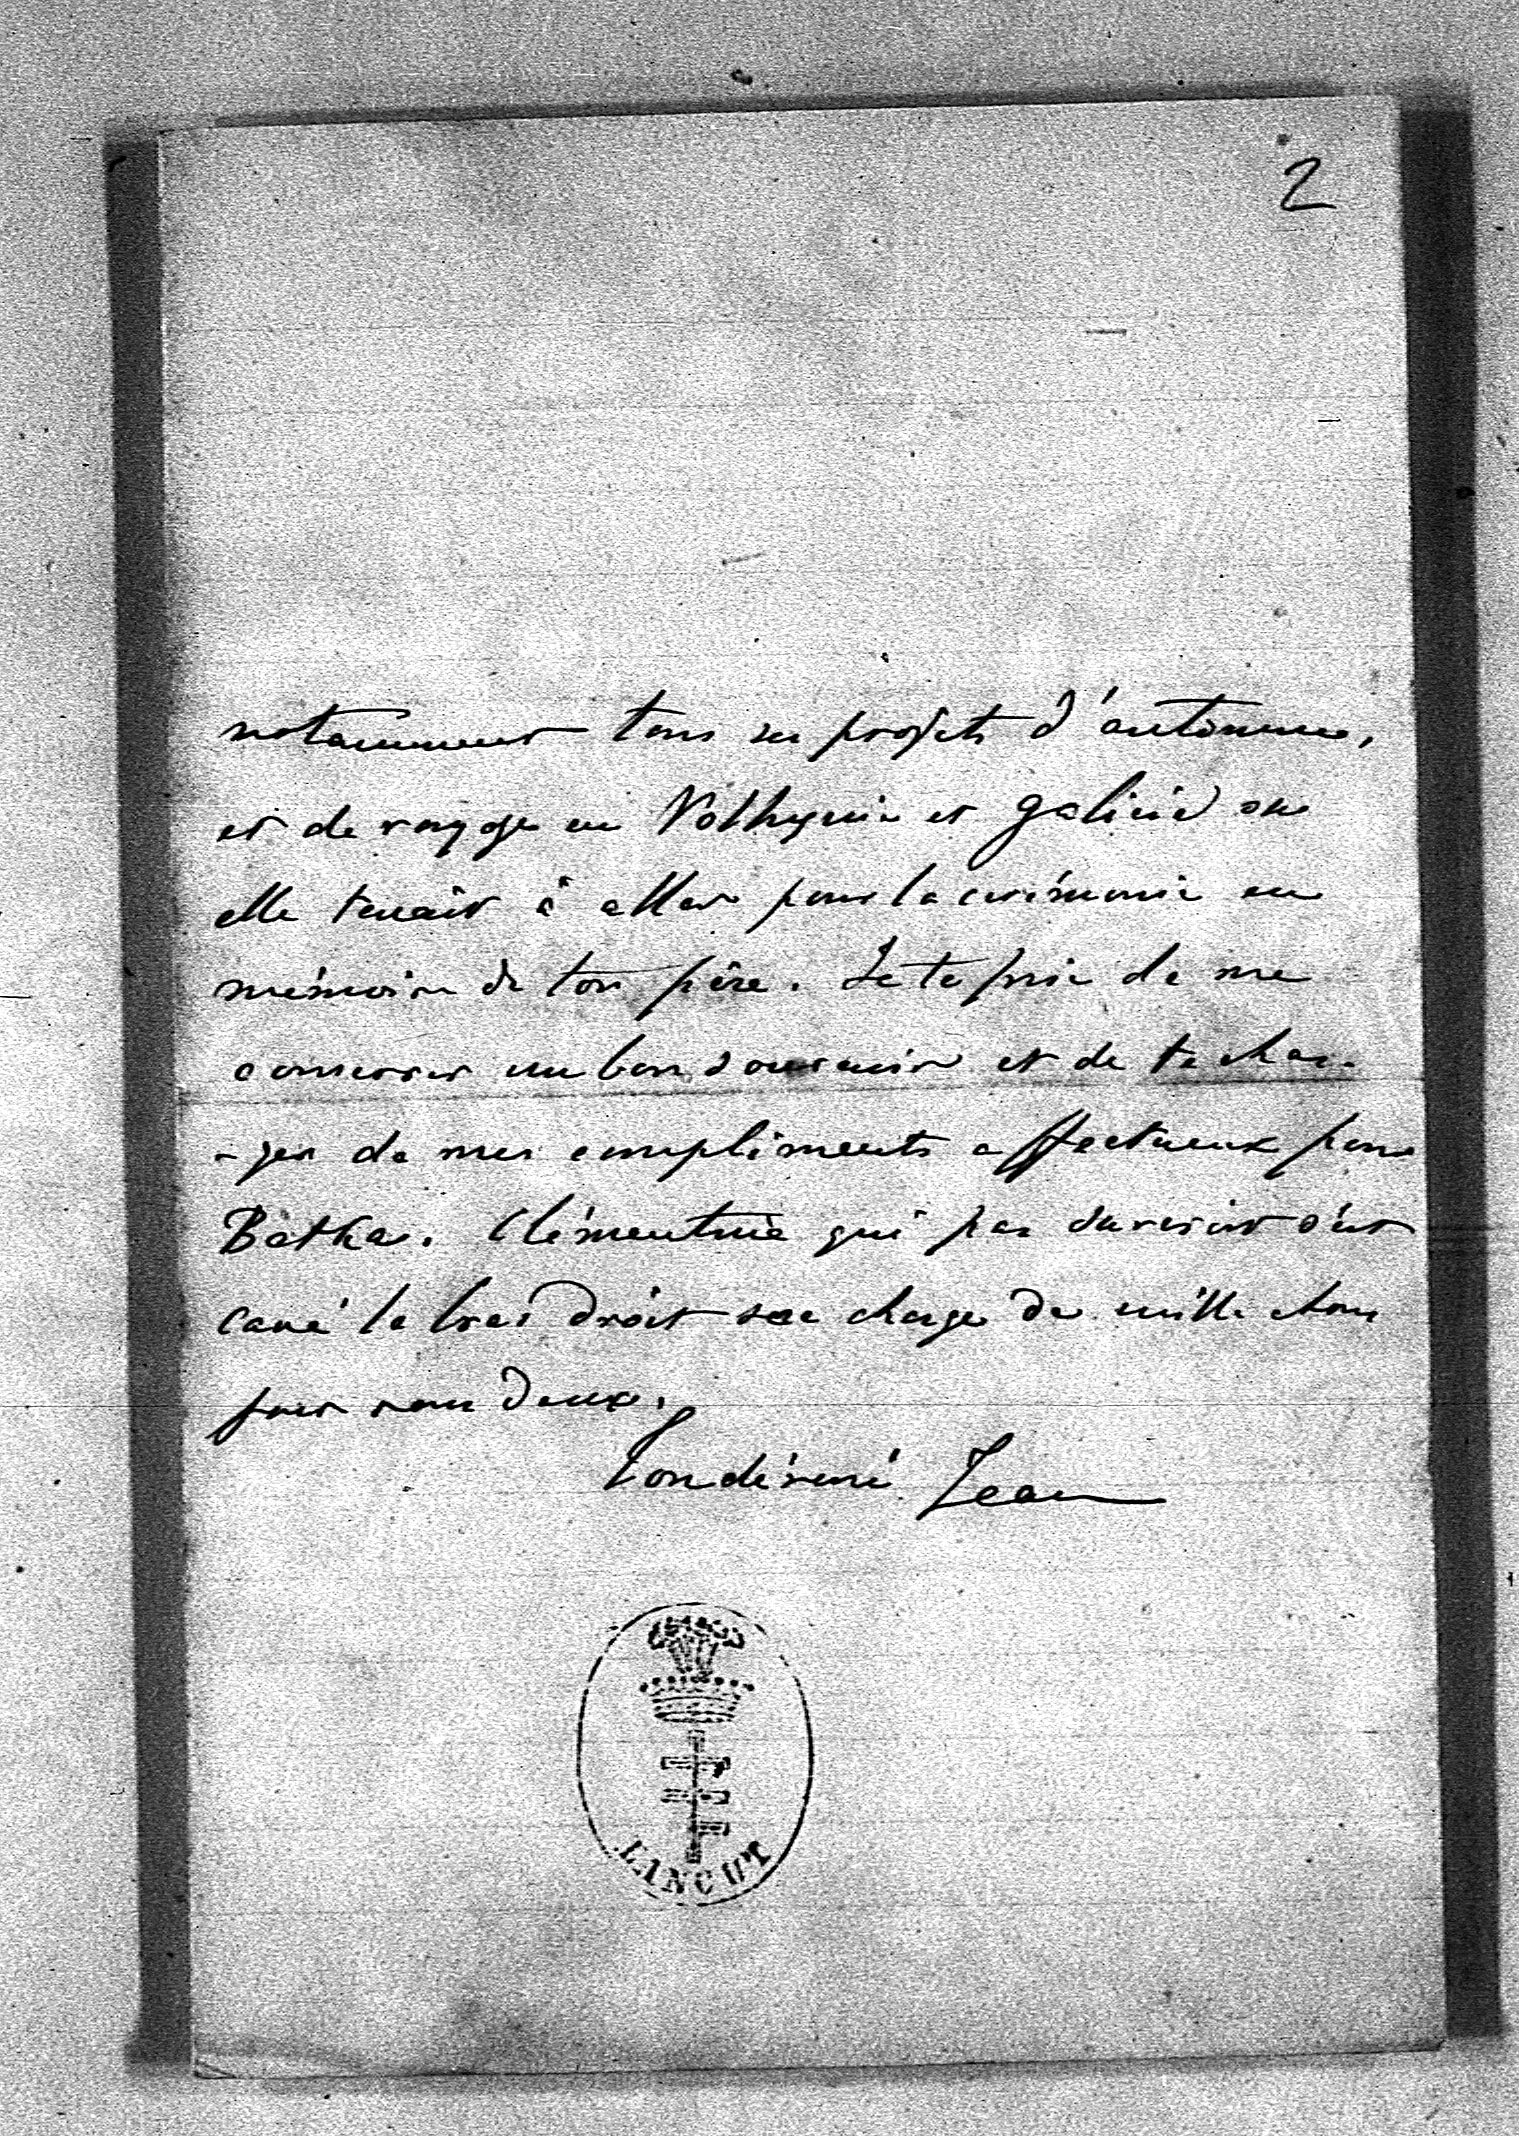 2
notamment tous ses projets d'automne,
et de voyage en Volhynie et Galicie où
elle tenait à aller pour la cérémonie en
mémoire de ton père. Je te prie de me
conserver un bon souvenir et de te char-
-ger de mes compliments affectueux pour
Betka. Clémentine qui par surcroit s'est
cassé le bras droit me charge de mille choses
pour vous deux.
Ton dévoué Jean
LANCUT